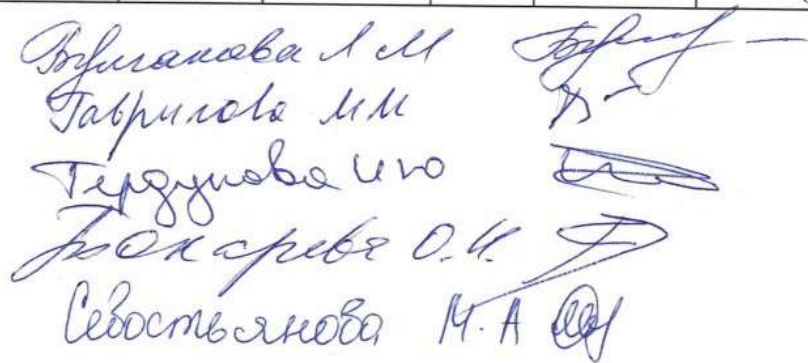 Булганова Л М
Гаврилова М М
Тердунова И Ю
Бокарева О.И.
Севостьянова М.А